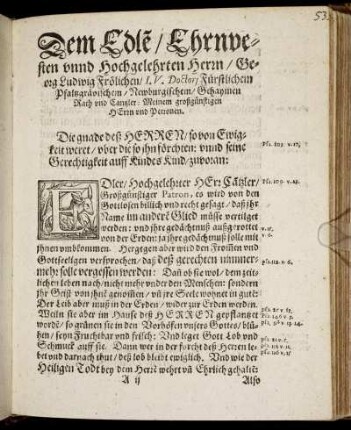 Dem Edlẽ / Ehrnve-
sten vnnd Hochgelehrten Herrn / Ge-
org Ludwig Frölichen / I. V. Doctorj Fürstlichem
Pfaltzgrävischem / Newburgischem / Gehaymen
Rath vnd Cantzler: Meinem großgünstigen
HErrn vnd Patronen.
Die gnade deß HERREN / so von Ewig-
keit weret / vber die so jhn förchten: vnnd seine
Gerechtigkeit auff Kindes Kind / zuvoran:
Psa. 103. v. 17.
EDler / Hochgelehrter HErr Cãtzler /
Großgünstiger Patron, es wird von den
Gottlosen billich vnd recht gesagt / daß jhr
Name im anderẽ Glied müsse vertilget
werden: vnd jhre gedächtnuß außgerottet
von der Erden: ja jhre gedächtnuß solle mit
jhnen vmbkommen. Hergegen aber wird den Frommen vnd
Gottseeligen versprochen / daß deß gerechten nimmer-
mehr solle vergessen werden: Dañ ob sie wol / dem zeit-
lichen leben nach / nicht mehr vnder den Menschen: sondern
jhr Geist von jhnẽ genom̃en / vñ jre Seele wohnet in gutẽ:
Der Leib aber muß in der Erden / wider zur Erden werden.
Weiln sie aber im Hause deß HERREN gepflantzet
wordẽ / so grünen sie in den Vorhöfen vnsers Gottes / blü-
hen / seyn Fruchtbar vnd frisch: Vnd leget Gott Lob vnd
Schmuck auff sie. Dann wer in der forcht deß Herren le-
bet vnd darnach thut / deß lob bleibt ewiglich. Vnd wie der
Heiligen Todt bey dem Herrẽ wehrt vñ Ehrlich gehaltẽ
A ij
Also
Psa. 109. v. 13.
Psa. 112. v. 6.